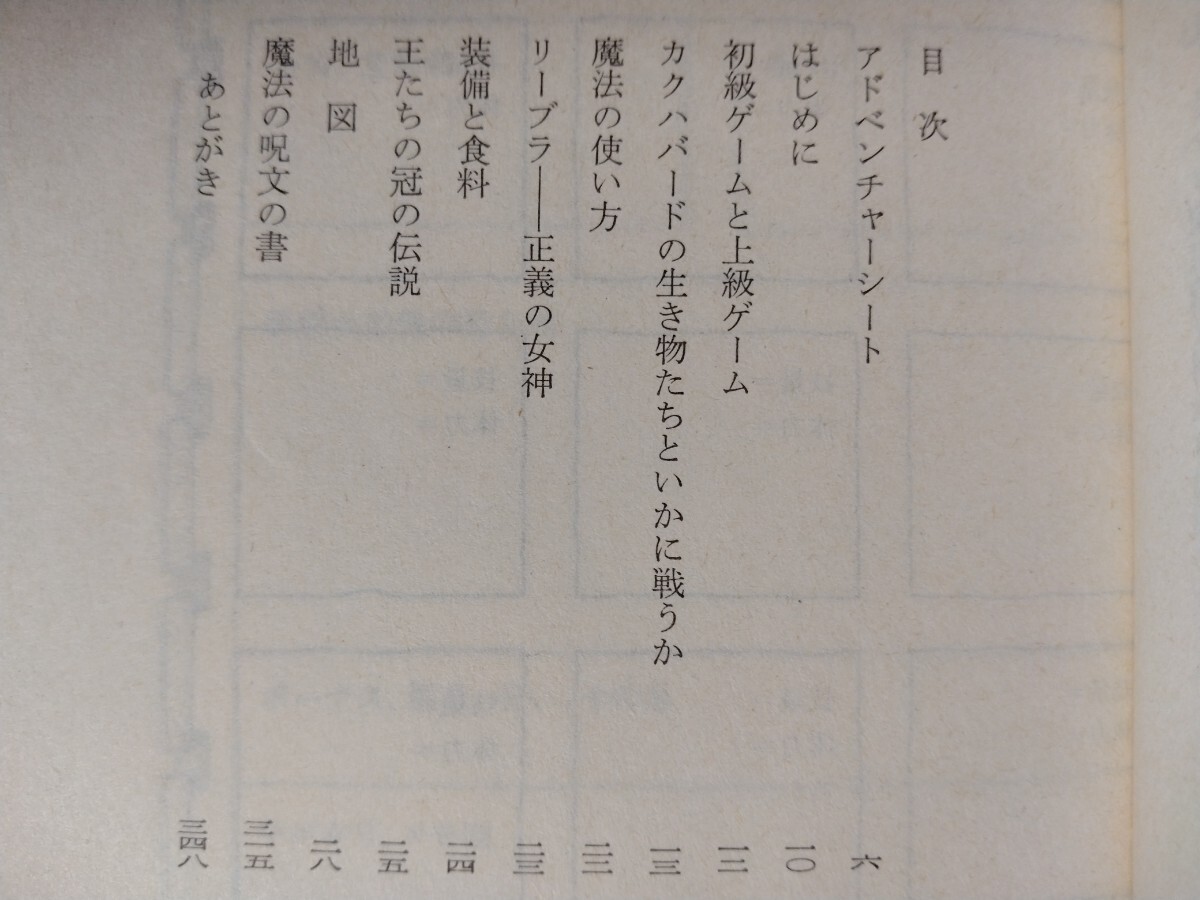 目次
アドベンチャーシート 六
はじめに 一〇
初級ゲームと上級ゲーム 一二
カクハバードの生き物たちといかに戦うか 一三
魔法の使い方 二二
リーブラ――正義の女神 二三
装備と食料 二四
王たちの冠の伝説 二五
地図 二八
魔法の呪文の書 三一五
あとがき 三四八